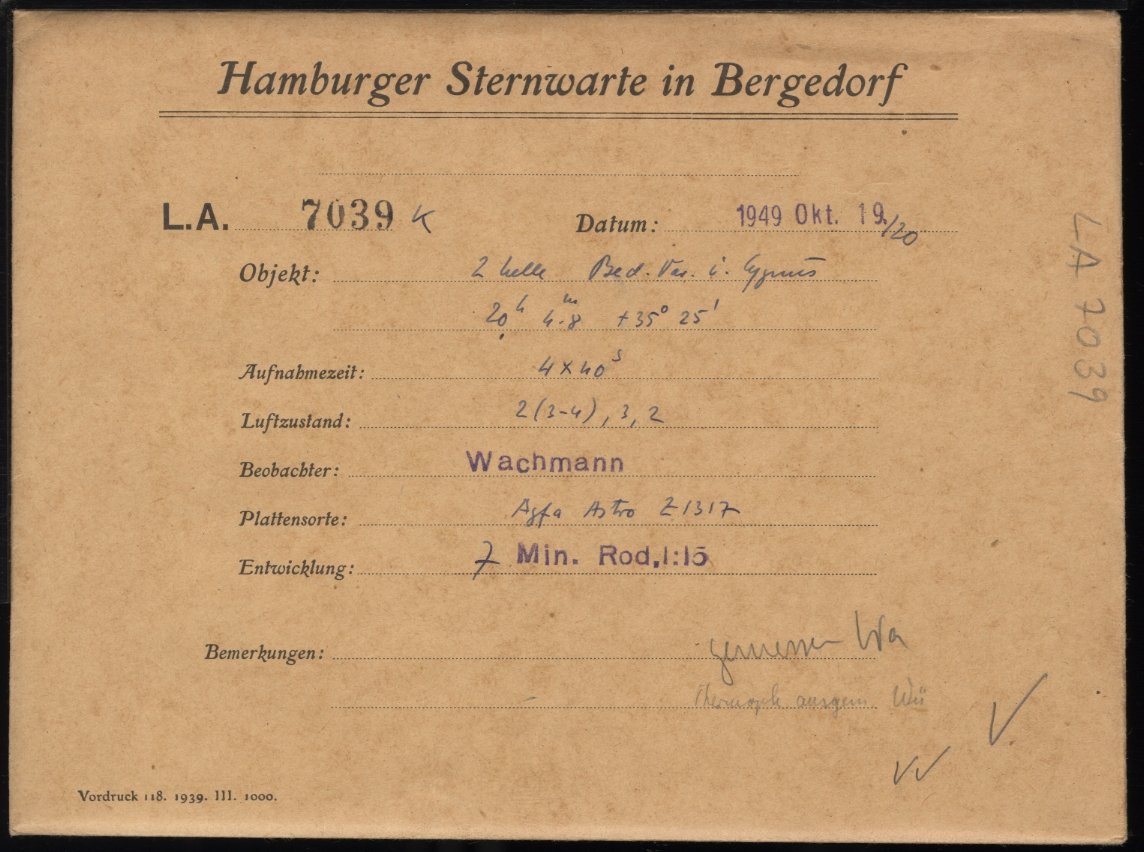 Hamburger Sternwarte in Bergedorf
L.A. 7039 K Datum: 1949 Okt. 19./20
Objekt: 2 helle Bed. Var. i. Cygnus
20h 4m.8 +35° 25'
Aufnahmezeit: 4 x 40s
Luftzustand: 2 (3-4), 3, 2
Beobachter: Wachmann
Plattensorte: Agfa Astro Z1317
Entwicklung: 7 Min. Rod,1:15
Bemerkungen: gemessen Wa
ausgem. Wü
Vordruck 118. 1939. III. 1000.
LA 7039